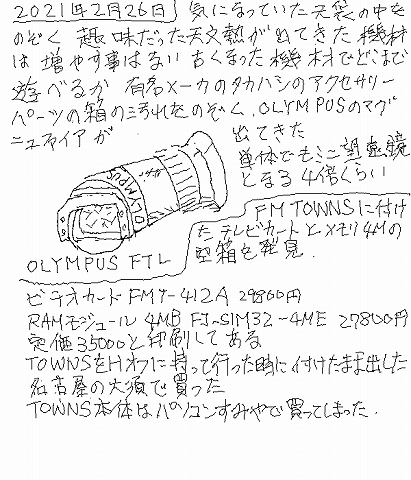 2021年2月26日 気になっていた天袋の中を
のぞく 趣味だった天文熱が出てきた 機材
は増やす事はない 古くなった機材でどこまで
遊べるか 有名メーカのタカハシのアクセサリー
パーツの箱のこうれをのぞく、OLYMPUSのマグ
ニュファイアが
出てきた
単体でもミニ望遠鏡
となる 4倍くらい
OLYMPUS
OLYMPUS FTL
FM TOWNSに付け
た テレビカートとメモリ4Mの
空箱を発見.
ビデオカード FMT-412A 29800円
RAMモジュール 4MB FJ-SIM32-4ME 27800円
定価35000と印刷してある
TOWNSをHオフに持って行った時に付けたまま出した
名古屋の大須で買った
TOWNS本体はパソコンすみやで買ってしまった.